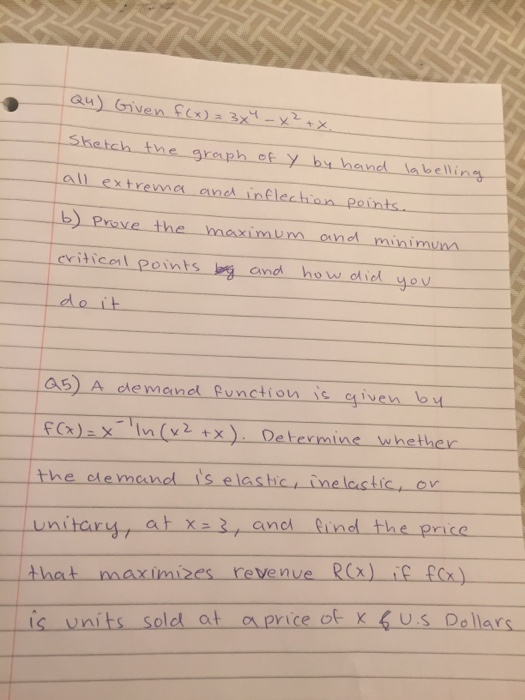 Q4) Given f(x) = 3x⁴ - x² + x.
Sketch the graph of y by hand labelling
all extrema and inflection points.
b) Prove the maximum and minimum
critical points and how did you
do it
Q5) A demand function is given by
f(x) = x⁻¹ ln(x² + x). Determine whether
the demand is elastic, inelastic, or
unitary, at x = 3, and find the price
that maximizes revenue R(x) if f(x)
is units sold at a price of x U.S Dollars